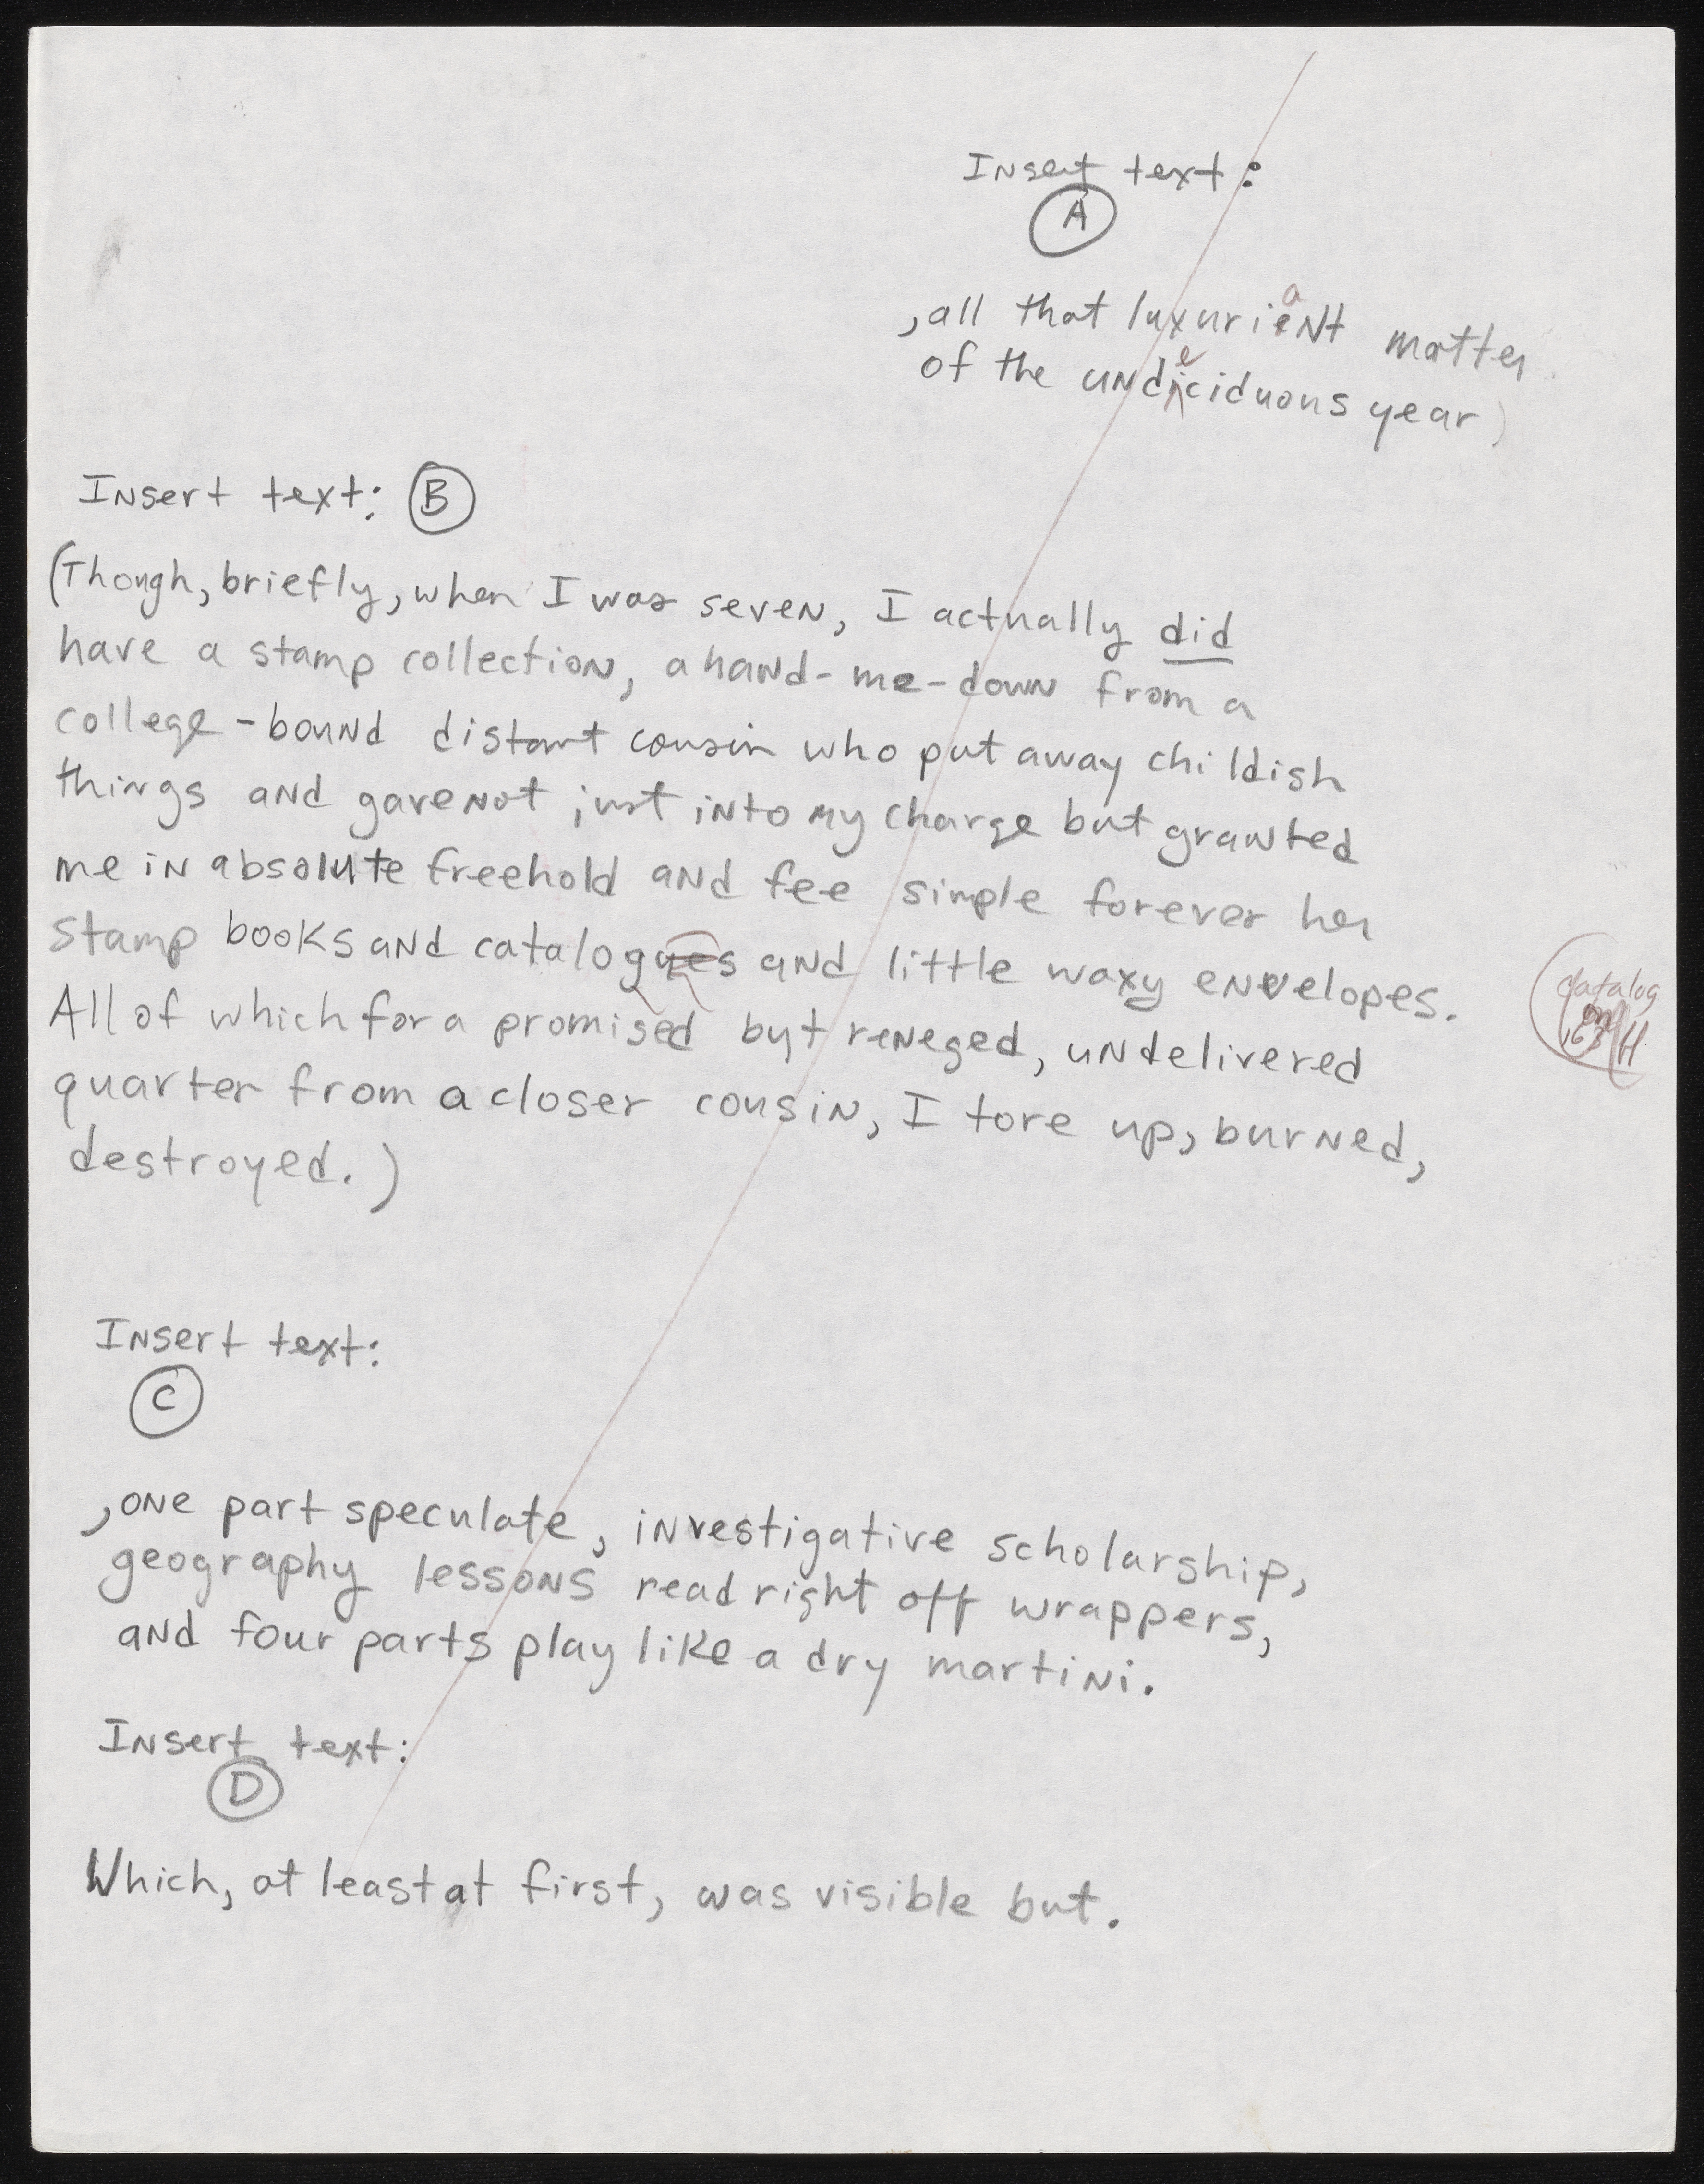 Insert text:
A
, all that luxurieant matter
of the undieciduous year)
Insert text: B
(Though, briefly, when I was seven, I actually did
have a stamp collection, a hand-me-down from a
college-bound distant cousin who put away childish
things and gave not just into my charge but granted
me in absolute freehold and fee simple forever her
stamp books and catalogues and little waxy envelopes.
catalog
on
163 H
All of which for a promised but reneged, undelivered
quarter from a closer cousin, I tore up, burned,
destroyed.)
Insert text:
C
, one part speculate, investigative scholarship,
geography lessons read right off wrappers,
and four parts play like a dry martini.
Insert text:
D
Which, at least at first, was visible but.